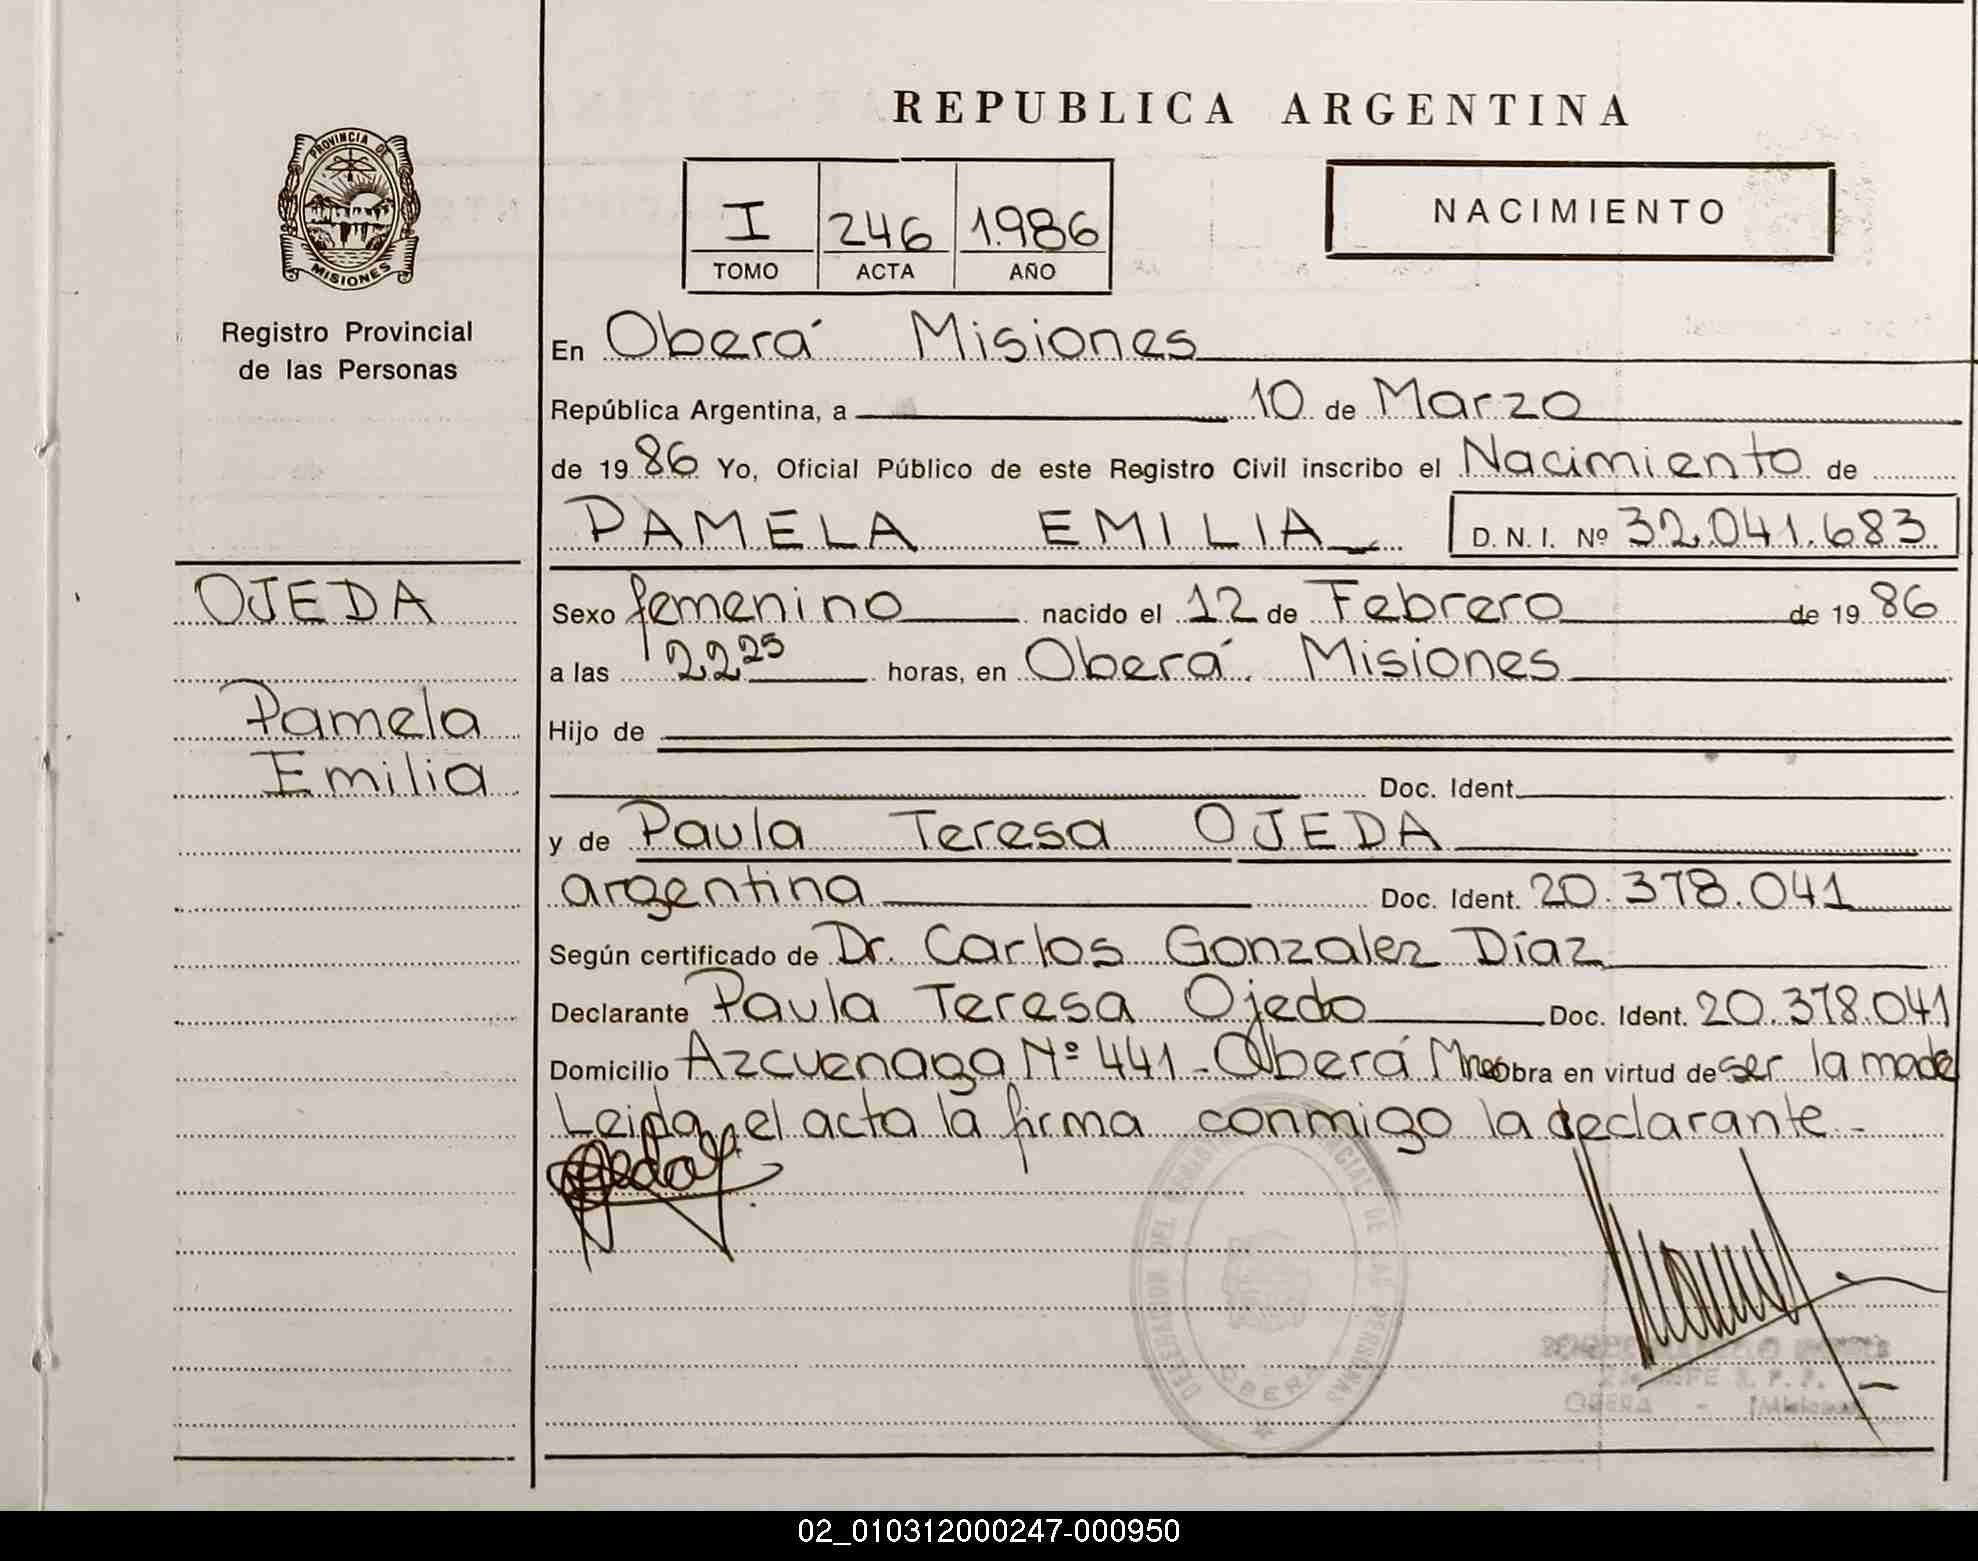 REPUBLICA ARGENTINA
PROVINCIA DE
MISIONES
Registro Provincial
de las Personas
I 246 1986
TOMO ACTA AÑO
NACIMIENTO
En Oberá Misiones
República Argentina, a 10 de Marzo
de 1986 Yo, Oficial Público de este Registro Civil inscribo el Nacimiento de
PAMELA EMILIA D. N. I. Nº 32.041.683
OJEDA
Pamela
Emilia
Sexo femenino nacido el 12 de Febrero de 1986
a las 22 25 horas, en Oberá Misiones
Hijo de
Doc. Ident.
y de Paula Teresa OJEDA
argentina Doc. Ident. 20.378.041
Según certificado de Dr. Carlos Gonzalez Díaz
Declarante Paula Teresa Ojeda Doc. Ident. 20.378.041
Domicilio Azcuenaga Nº 441 - Oberá Mnes obra en virtud de ser la made
Leida el acta la firma conmigo la declarante -
PROVINCIAL DE LAS PERSONAS
OBERA
OBERA - (Misiones)
02_010312000247-000950